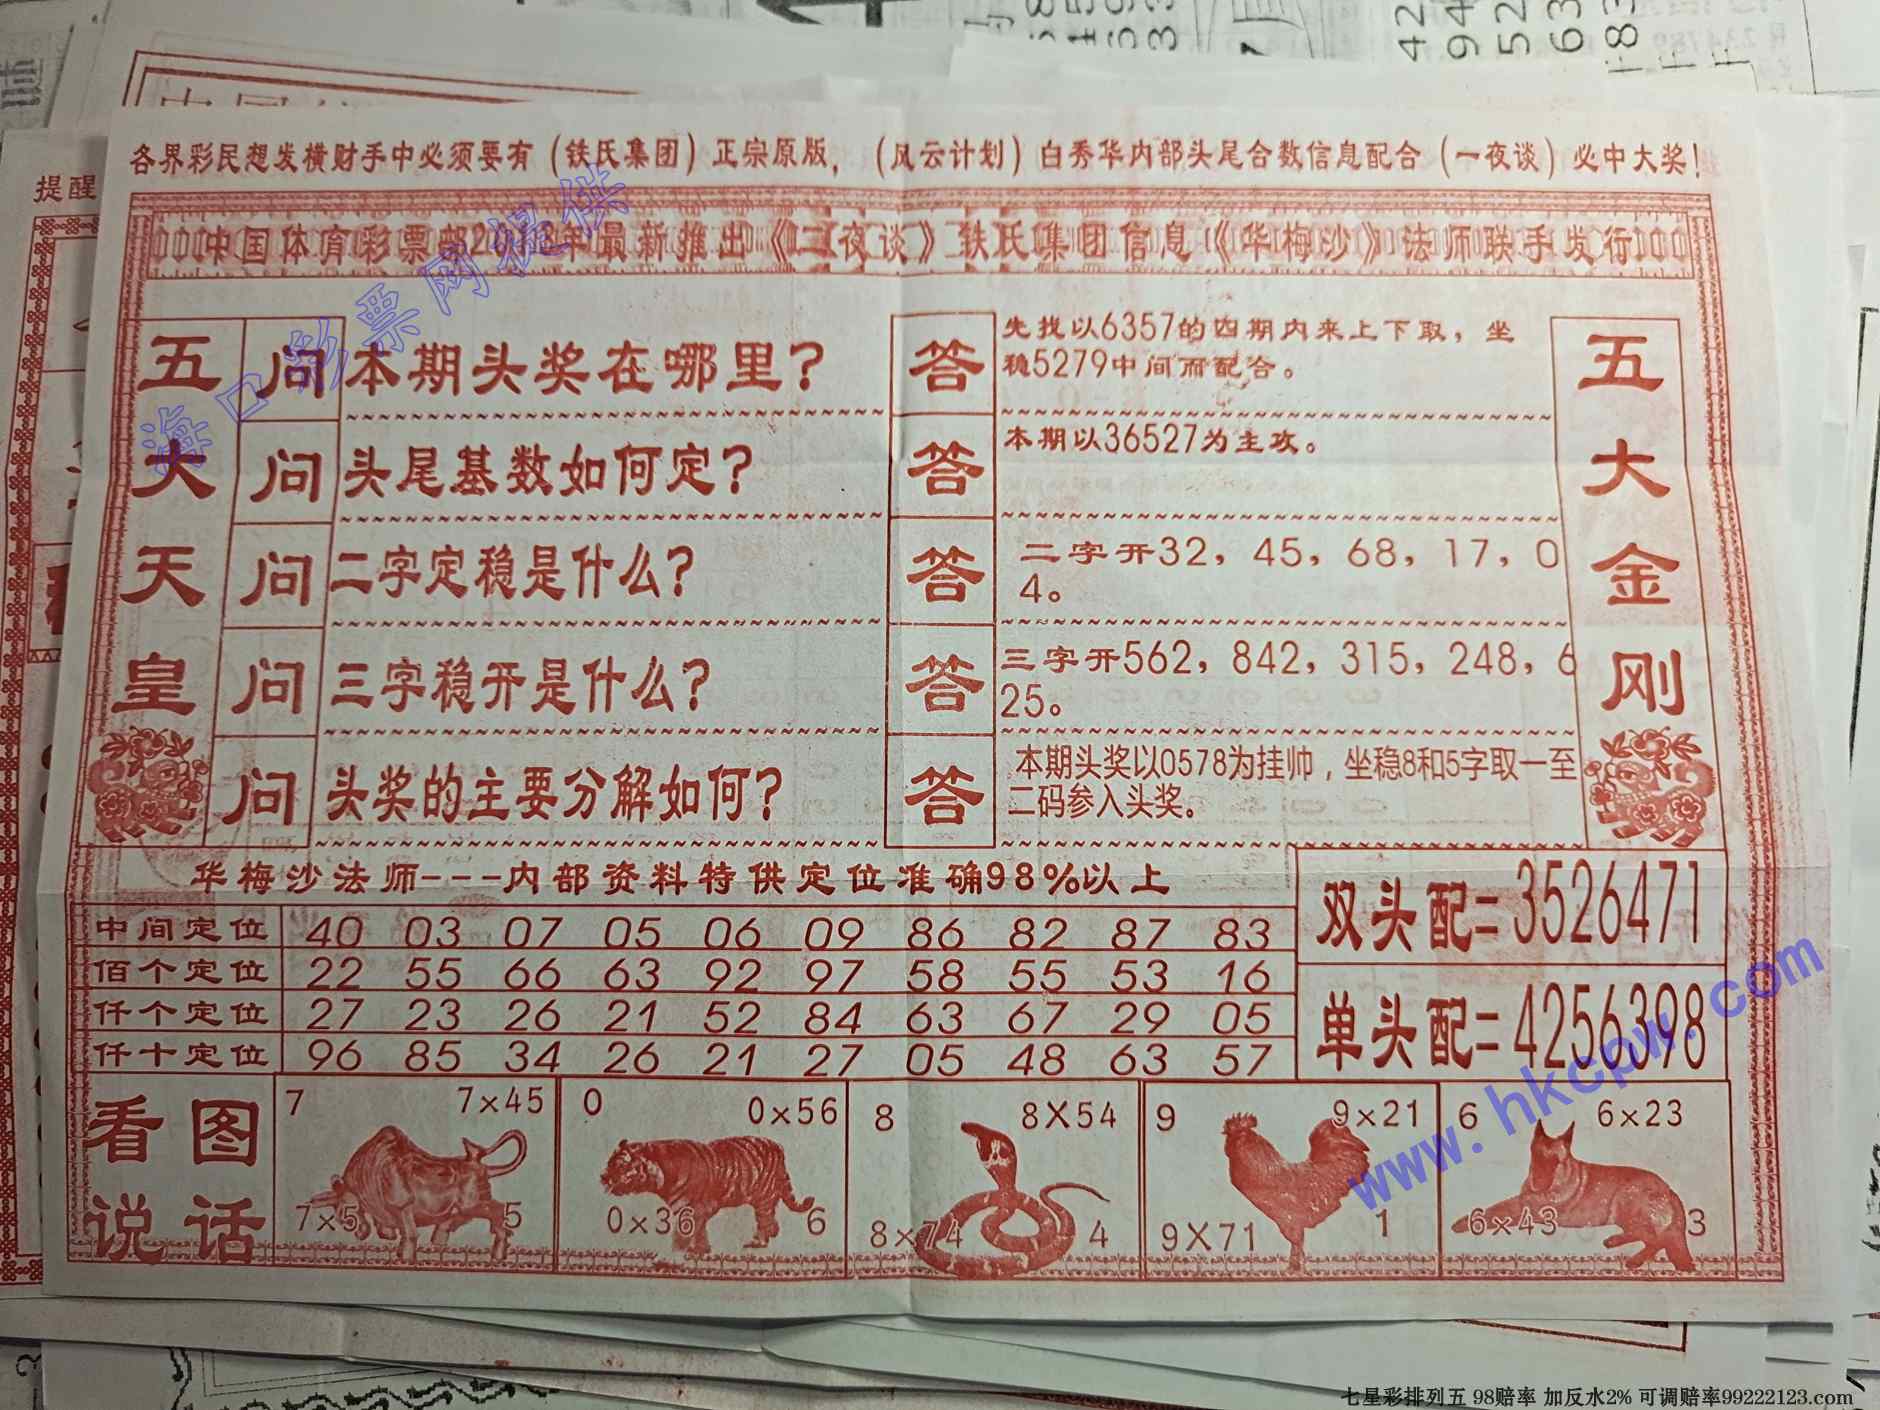 各界彩民想发横财手中必须要有（铁氏集团）正宗原版，（风云计划）白秀华内部头尾合数信息配合（一夜谈）必中大奖！
提醒
海口彩票网提供
最新推出《一夜谈》铁氏集团信息《华梅沙》法师联手发行
五大天皇
五大金刚
问 本期头奖在哪里？
答 先找以6357的四期内来上下取，坐
稳5279中间而配合。
问 头尾基数如何定？
答 本期以36527为主攻。
问 二字定稳是什么？
答 二字开32，45，68，17，0
4。
问 三字稳开是什么？
答 三字开562，842，315，248，6
25。
问 头奖的主要分解如何？
答 本期头奖以0578为挂帅，坐稳8和5字取一至
二码参入头奖。
华梅沙法师---内部资料特供定位准确98%以上
中间定位 40 03 07 05 06 09 86 82 87 83
佰个定位 22 55 66 63 92 97 58 55 53 16
仟个定位 27 23 26 21 52 84 63 67 29 05
仟十定位 96 85 34 26 21 27 05 48 63 57
双头配=3526471
单头配=4256398
看图
说话
7 7×45
7×5 5
0 0×56
0×36 6
8 8×54
8×74 4
9 9×21
9×71 1
6 6×23
6×43 3
www.hkcpw.com
七星彩排列五 98赔率 加反水2% 可调赔率99222123.com